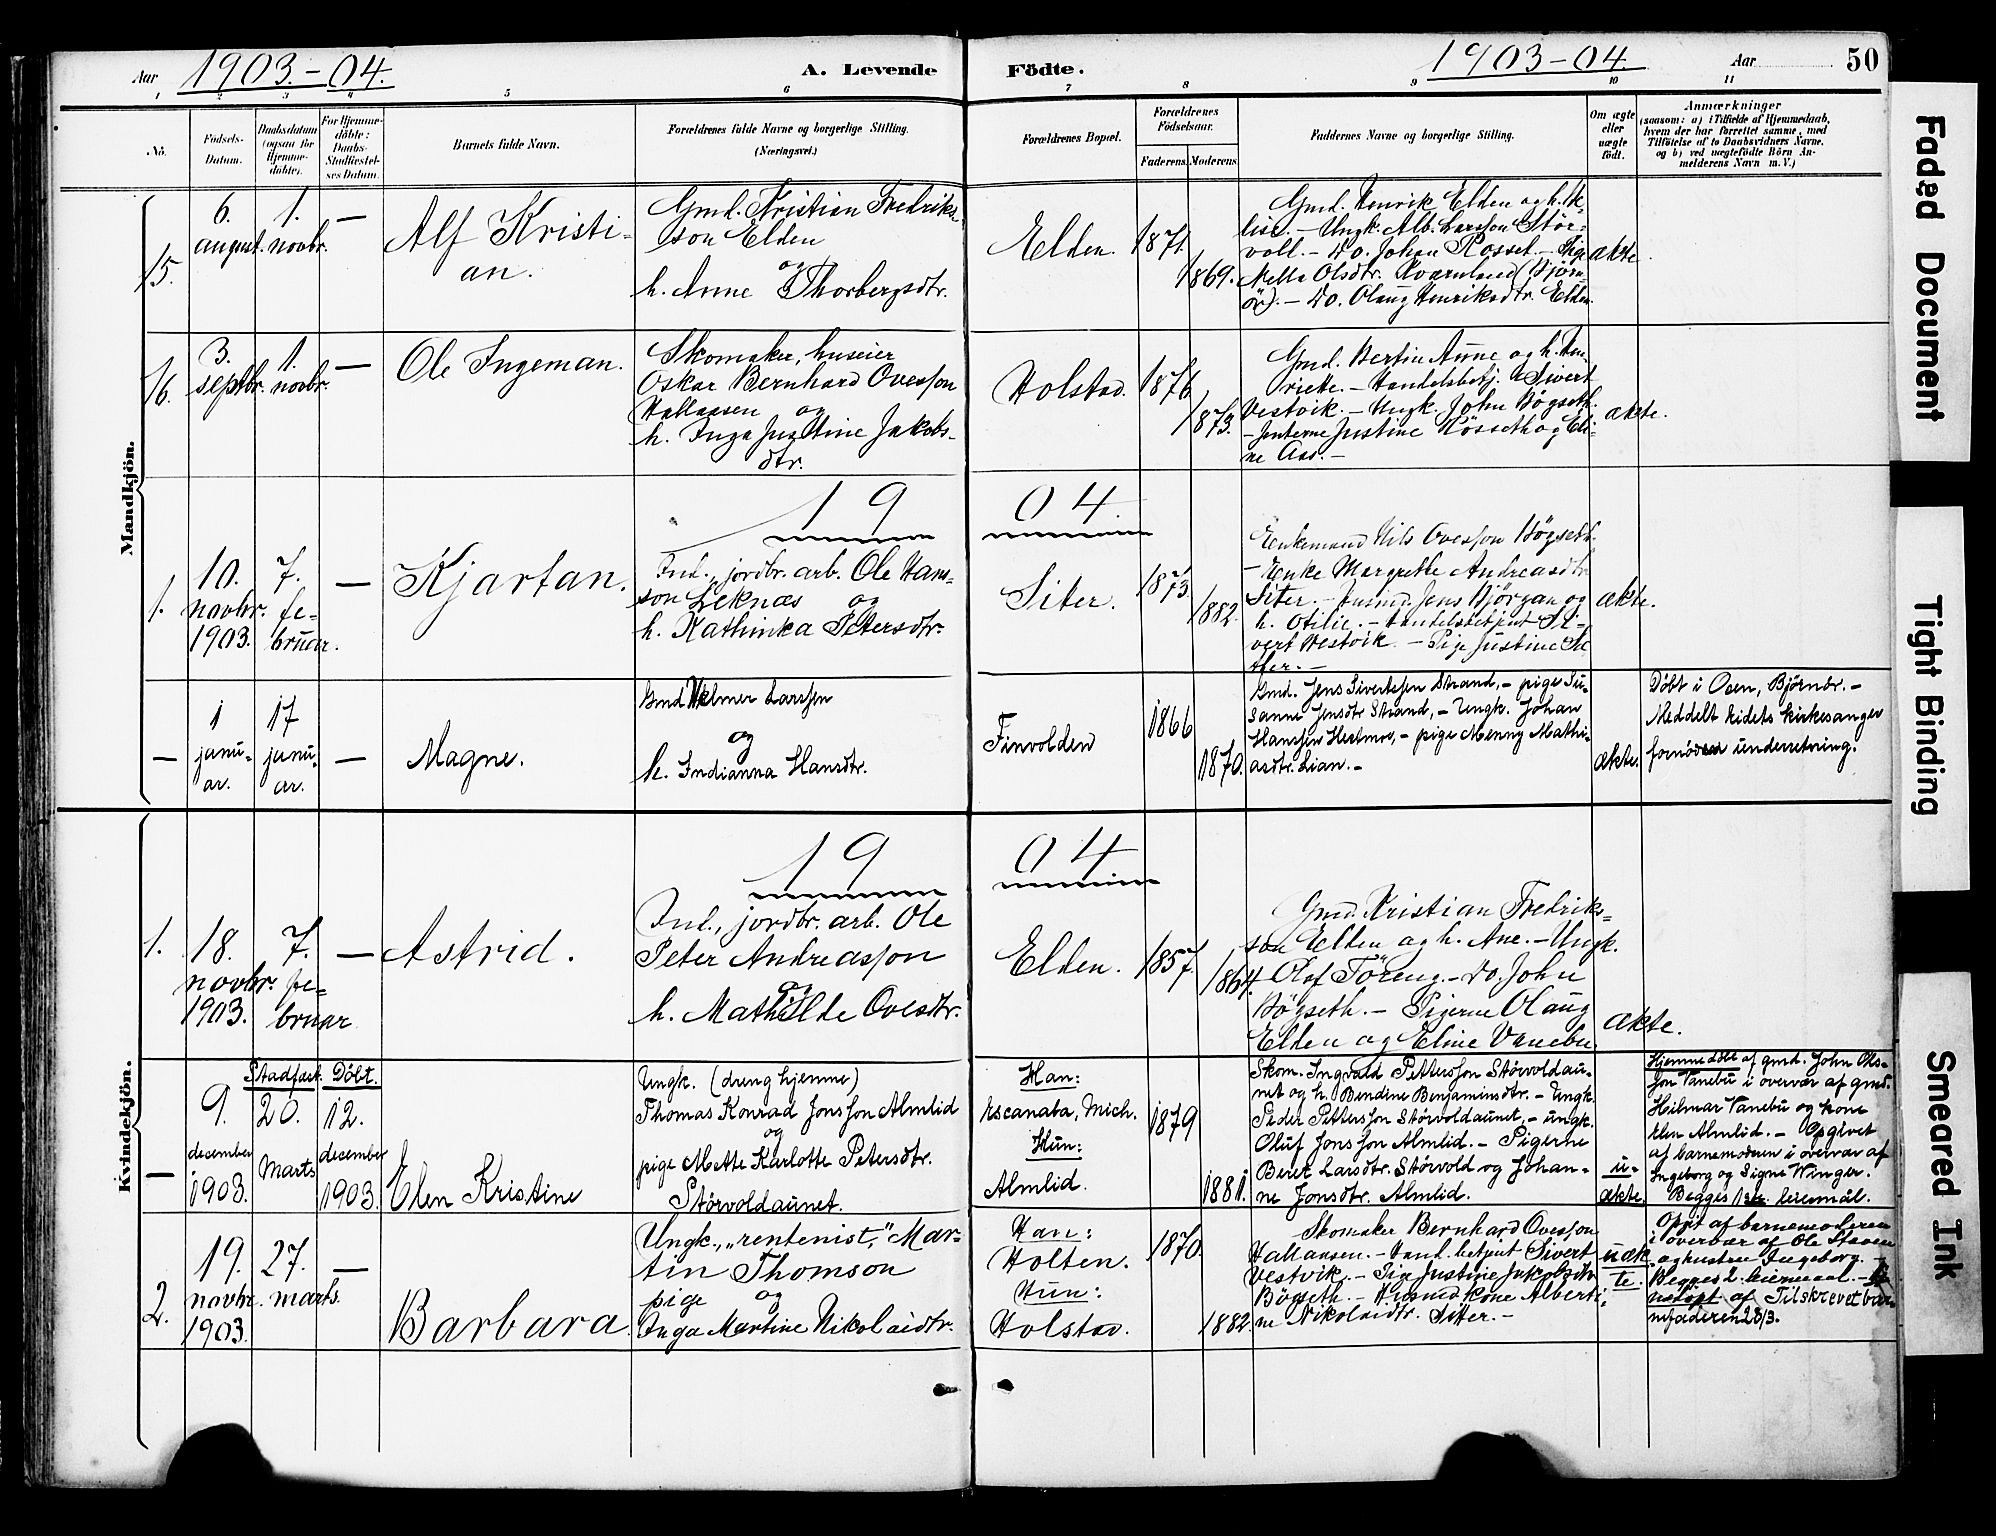 Aar 1903.-04.
A. Levende Födte.
1903-04. Aar 50
1 2 3 4 5 6 7 8 9 10 11
No.
Födsels-
Datum.
Daabsdatum
(ogsaa for
Hjemme-
döbte).
For Hjemme-
döbte:
Daabs-
Stadfæstel-
ses Datum.
Barnets fulde Navn.
Forældrenes fulde Navne og borgerlige Stilling.
(Næringsvei.)
Forældrenes Bopæl.
Forældrenes
Födselsaar.
Faderens.
Moderens.
Faddernes Navne og borgerlige Stilling.
Om ægte
eller
uægte
födt.
Anmærkninger
(saasom: a) i Tilfælde af Hjemmedaab,
hvem der har forrettet samme, med
Tilföielse af to Daabsvidners Navne,
og b) ved uægtefödte Börn An-
melderens Navn m. V.)
Mandkjön.
15.
6.
august.
1.
novbr.
—
Alf Kristi-
an.
Gmd. Kristian Fredriks-
son Elden
og
h. Anne Thorbergsdtr.
Elden.
1871.
1869.
Gmd. Henrik Elden og h.
Ungk. Alb. Larsson Stör-
voll. - Do. Johan Rosset. - Pige
Metta Olsdtr. Kvarnland (Björn-
ör). - Do. Olaug Henriksdtr. Elden.
ækte.
16.
3.
septbr.
1.
novbr.
—
Ole Ingeman.
Skomaker, huseier
Oskar Bernhard Ovesson
Hallaasen og
h. Inga Justine Jakobs-
dtr.
Holstad.
1876.
1873.
Gmd. Bertin Aune og h. Hen-
riette. - Handelsbetj. Sivert
Vestvik. - Ungk. John Bögseth.
- Jenterne Justine Rösseth og Eli-
ne Aas. -
ækte.
19 04
1.
10.
novbr.
1903.
7.
fe-
bruar.
—
Kjartan.
Ind., jordbr. arb. Ole Hans-
son Leknæs og
h. Kathinka Petersdtr.
Siter.
1873.
1882.
Enkemand Nils Ovesson Bögseth.
- Enke Margrethe Andreasdtr.
Siter. - Husmd. Jens Björgan og
h. Otilie. - Handelsbetjent Si-
vert Vestvik. - Pige Justine Si-
ter. -
ækte.
—
1
janu-
ar.
17
janu-
ar.
—
Magne.
Gmd Helmer Larssen
og
h. Indianna Hansdtr.
Finvolden
1866
1870.
Gmd. Jens Sivertssen Strand, - pige Su-
sanne Jensdtr Strand, - Ungk. Johan
Hanssen Hestmo, - pige Menny Mathi-
asdtr. Lian. -
ækte.
Döbt i Osen, Björnör. -
Meddelt stedets kirkesanger
fornöden underretning.
Kvindekjön.
19 04
1.
18.
novbr.
1903.
7.
fe-
bruar
—
Astrid.
Ind., jordbr. arb. Ole
Peter Andreasson
og
h. Mathilde Ovesdtr.
Elden.
1857.
1864.
Gmd. Kristian Fredriks-
son Elden og h. Ane. - Ungk.
Olaf Töreng. - Do. John
Bögseth. - Pigerne Olaug
Elden og Eline Vanebu.
ækte.
—
9.
december
1903.
Stadfæst.
20.
Marts
Döbt.
12.
december
1903.
Elen Kristine
Ungk. (dreng hjemme)
Thomas Konrad Jonsson Almlid
og
pige Mette Karlotte Petersdtr.
Störvoldaunet.
Han:
Escanaba, Mich.
Hun:
Almlid.
1879
1881.
Skom. Ingvald Pettersson Störvoldau-
net og h. Bendine Benjaminsdtr. - Ungk.
Peder Pettersson Störvoldaunet, - ungk.
Oluf Jonsson Almlid. - Pigerne
Beret Larsdtr. Störvold og Johan-
ne Jonsdtr. Almlid.
u-
ækte.
Hjemmedöbt af gmd. John Ols-
son Vanebu i overvær af gmd.
Hilmar Vanebu og kone
Elen Almlid. - Opgivet
af barnemoderen i overvær af
Ingeborg og Signe Winger.
Begges 1ste leiermaal.
2.
19.
novbr.
1903.
27.
marts.
—
Barbara.
Ungk., „rentenist," Mar-
tin Thomson
og
pige
Inga Martine Nikolaidtr.
Han:
Holten.
Hun:
Holstad.
1870.
1882.
Skomaker Bernhard Ovesson
Hallaasen. - Hand. betjent Sivert
Vestvik. - Pige Justine Jakobsdtr
Bögseth. - Husmdkone Alberti-
ne Nikolaidtr. Sitter. -
uæk-
te.
Opgit af barnemoderen
i overvær af Ole
og hustru Ingeborg. -
Begges 2. leiermaal. -
af Tilskrevet bar-
nefaderen 28/3.
Faded Document
Tight Binding
Smeared Ink